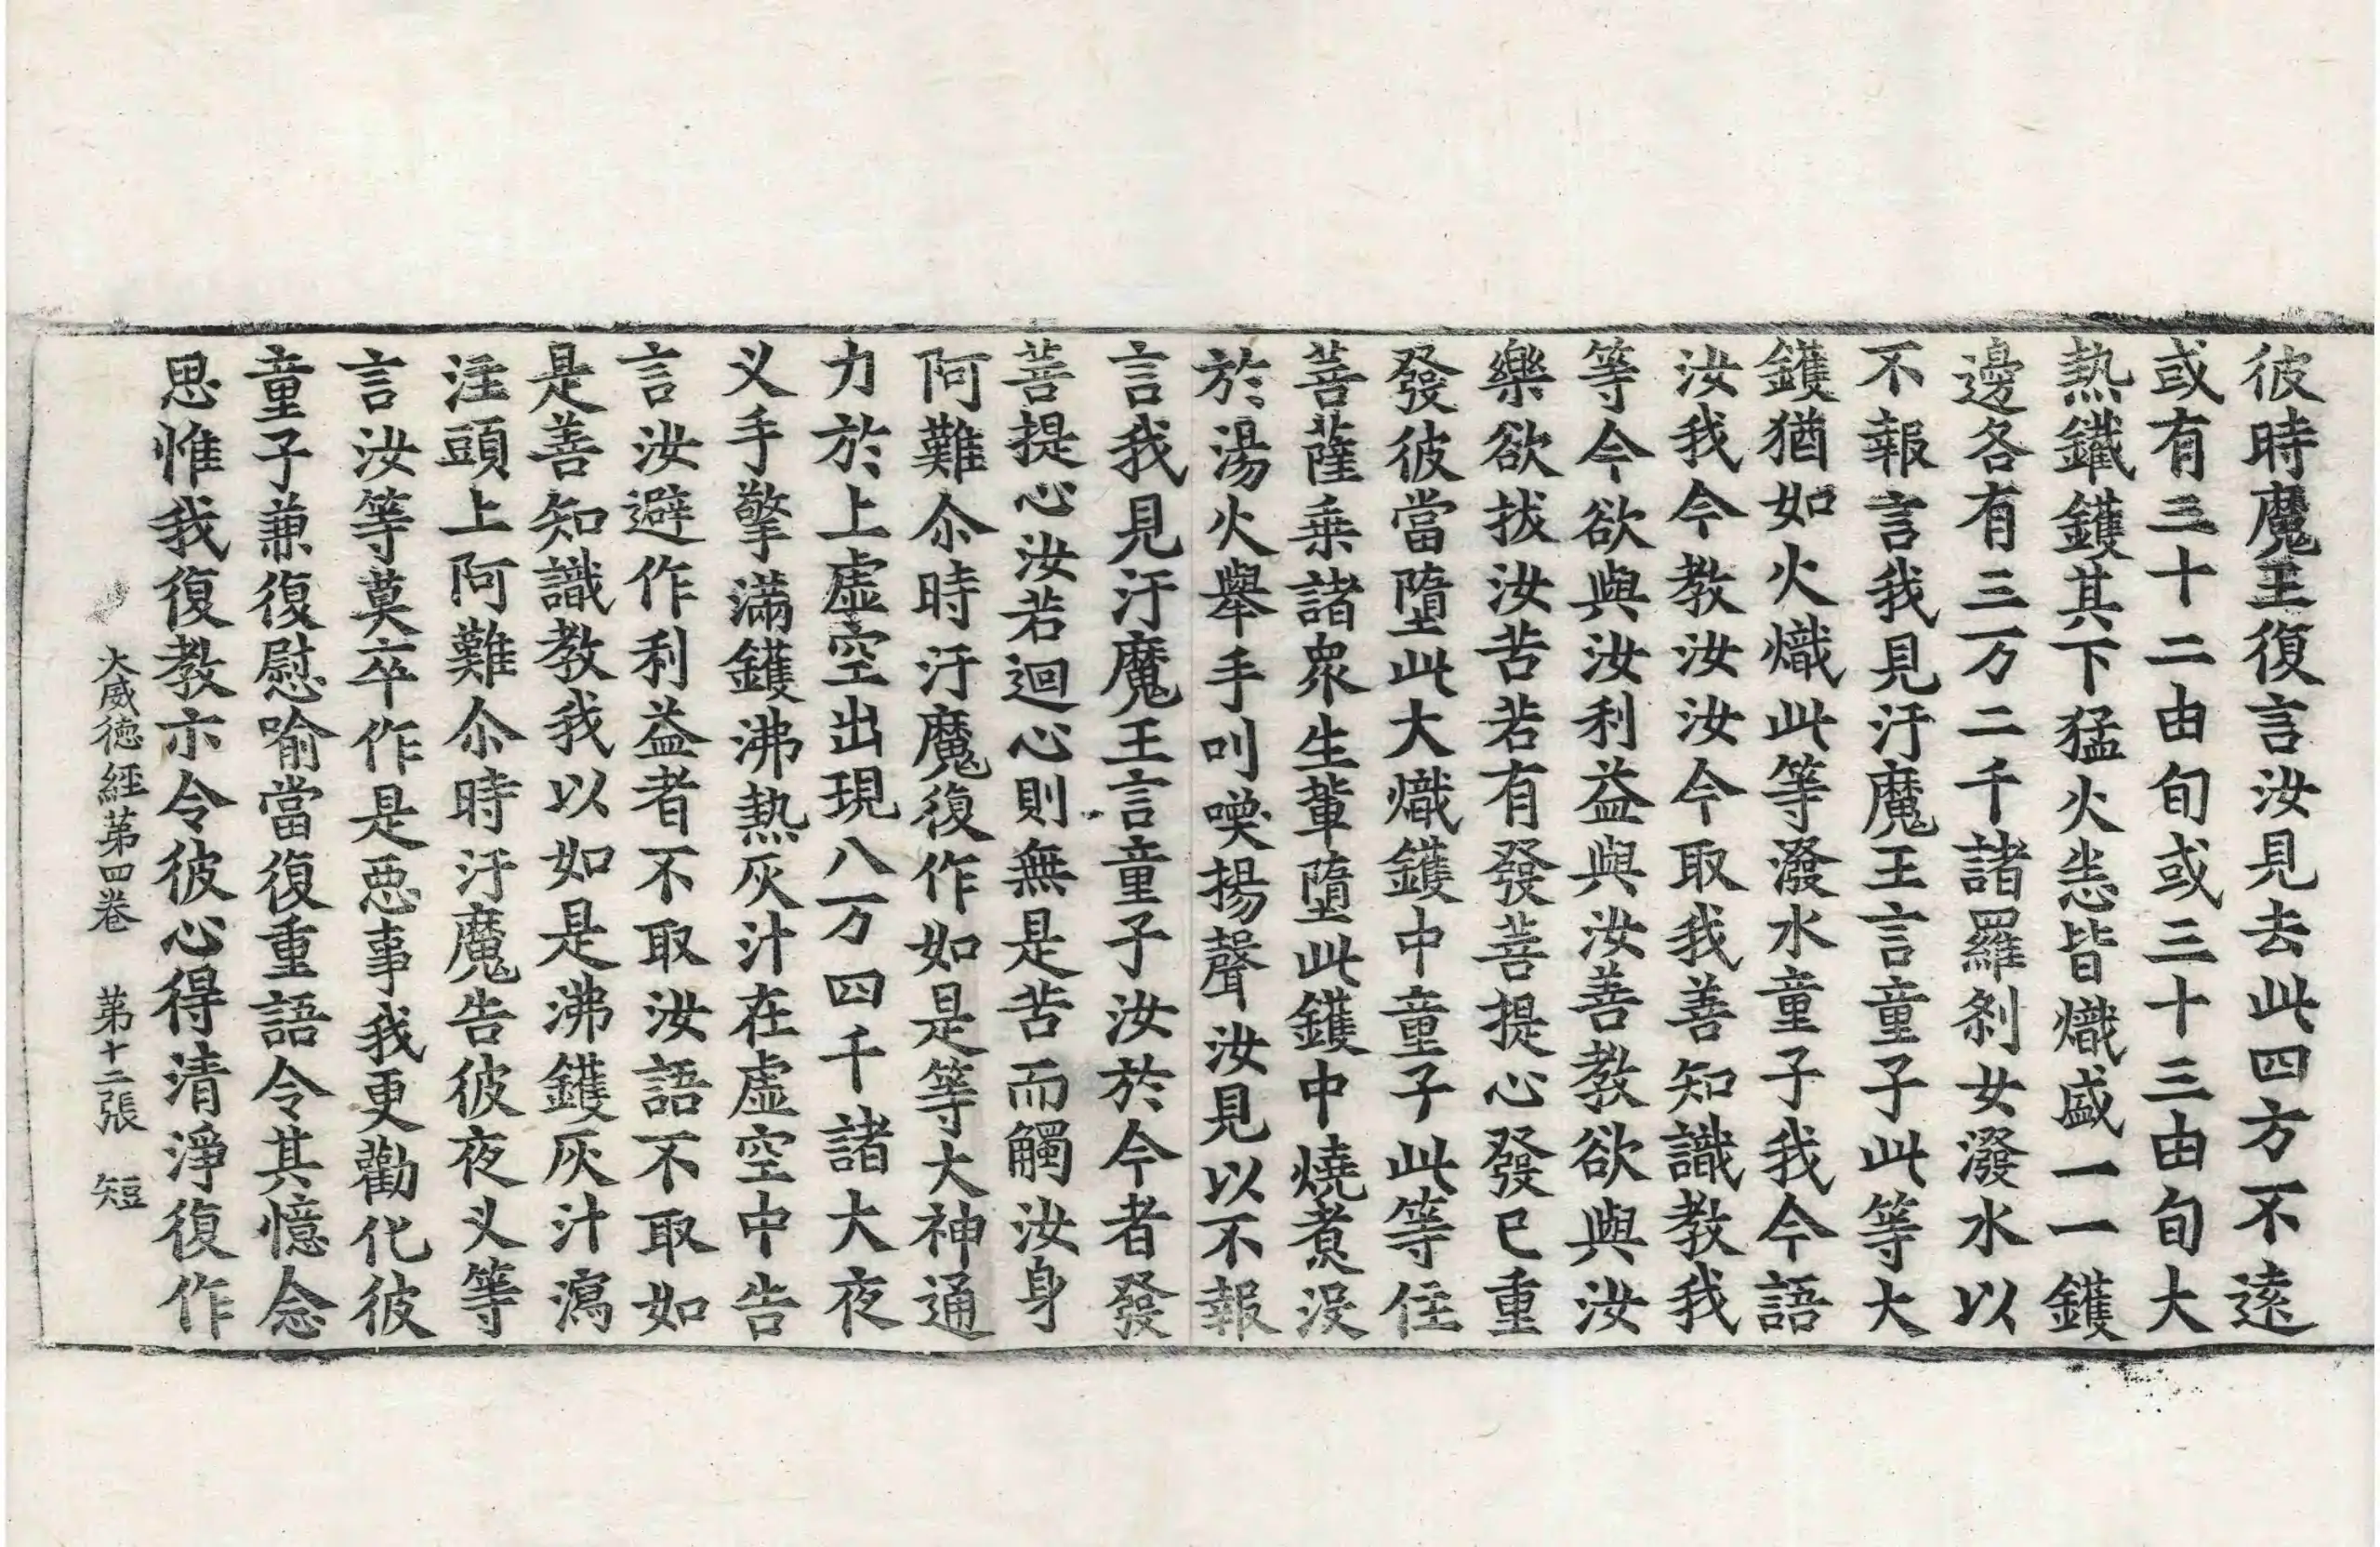 彼時魔王復言汝見去此四方不遠
或有三十二由旬或三十三由旬大
熱鐵鑊其下猛火悉皆熾盛一一鑊
邊各有三万二千諸羅刹女潑水以
不報言我見汙魔王言童子此等大
鑊猶如火熾此等潑水童子我今語
汝我今教汝汝今取我善知識教我
等今欲與汝利益與汝善教欲與汝
樂欲拔汝苦若有發菩提心發已重
發彼當墮此大熾鑊中童子此等住
菩薩乗諸衆生輩墮此鑊中燒煮没
於湯火舉手叫喚揚聲汝見以不報
言我見汙魔王言童子汝於今者發
菩提心汝若迴心則無是苦而觸汝身
阿難尒時汙魔復作如是等大神通
力於上虛空出現八万四千諸大夜
义手擎滿鑊沸熱灰汁在虛空中告
言汝避作利益者不取汝語不取如
是善知識教我以如是沸鑊灰汁瀉
注頭上阿難尒時汙魔告彼夜义等
言汝等莫卒作是惡事我更勸化彼
童子兼復慰喻當復重語令其憶念
思惟我復教亦令彼心得清淨復作
大威徳經第四卷 第十二張 短